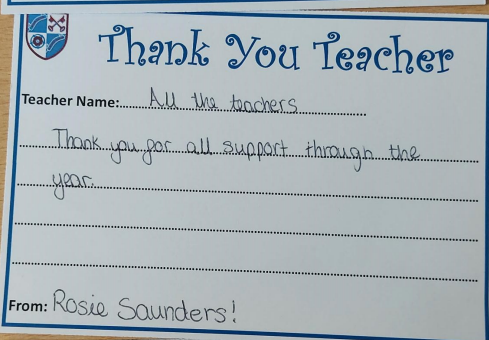 Thank You Teacher
Teacher Name: All the teachers
Thank you for all support through the
year.
From: Rosie Saunders!